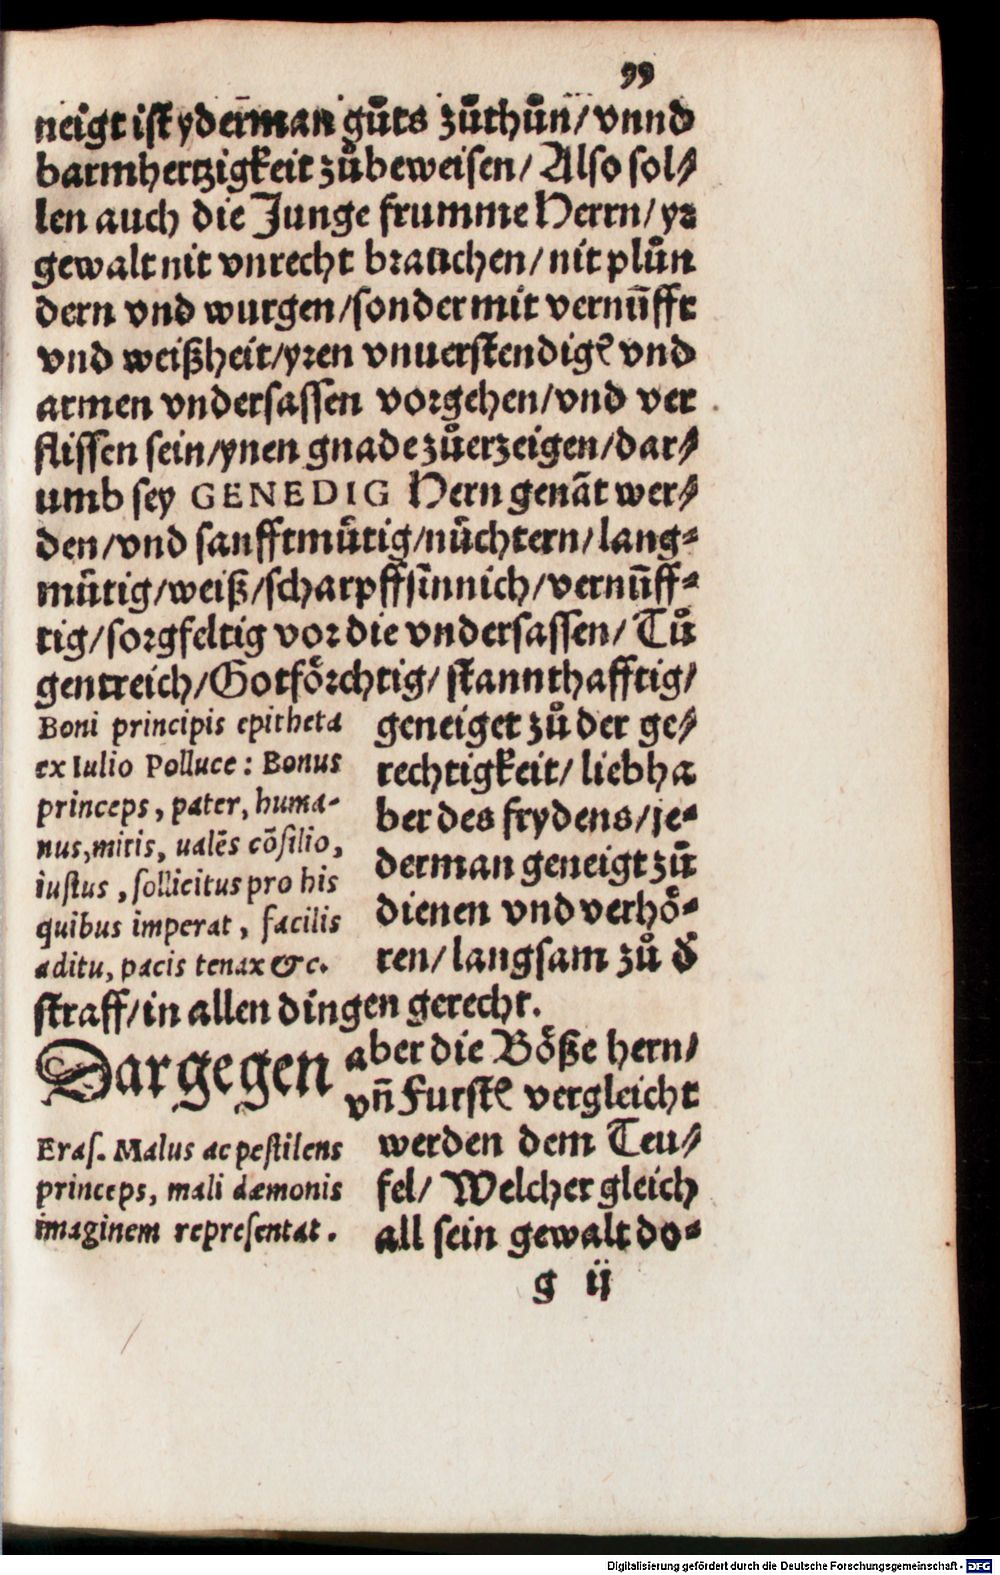 99
neigt ist yderman gůts zůthůn/ vnnd
barmhertzigkeit zůbeweisen/ Also sol⸗
len auch die Junge frumme Herrn/ yr
gewalt nit vnrecht brauchen/ nit plůn
dern vnd wurgen/sonder mit vernũfft
vnd weißheit/yren vnuerstendigẽ vnd
armen vndersassen vorgehen/vnd ver
flissen sein/ynen gnade zůerzeigen/dar⸗
umb sey GENEDIG Hern genãt wer⸗
den/vnd sanfftmůtig/nůchtern/lang⸗
můtig/weiß/scharpffsinnich/vernũff⸗
tig/sorgfeltig vor die vndersassen/ Tů
gentreich/Gotfoͤrchtig/ stannthafftig/
geneiget zů der ge⸗
rechtigkeit/ liebha
ber des frydens/je⸗
derman geneigt zů
dienen vnd verhoͤ⸗
ren/langsam zů d̕
straff/in allen dingen gerecht.
Boni principis epitheta
ex Iulio Polluce: Bonus
princeps, pater, huma-
nus,mitis, ualẽs cõsilio,
iustus, sollicitus pro his
quibus imperat, facilis
aditu, pacis tenax &c.
Dargegen aber die Boͤße hern/
vñ Furstẽ vergleicht
werden dem Teu⸗
fel/ Welcher gleich
all sein gewalt do⸗
Eras. Malus ac pestilens
princeps, mali dæmonis
imaginem representat.
g ij
Digitalisierung gefördert durch die Deutsche Forschungsgemeinschaft - DFG